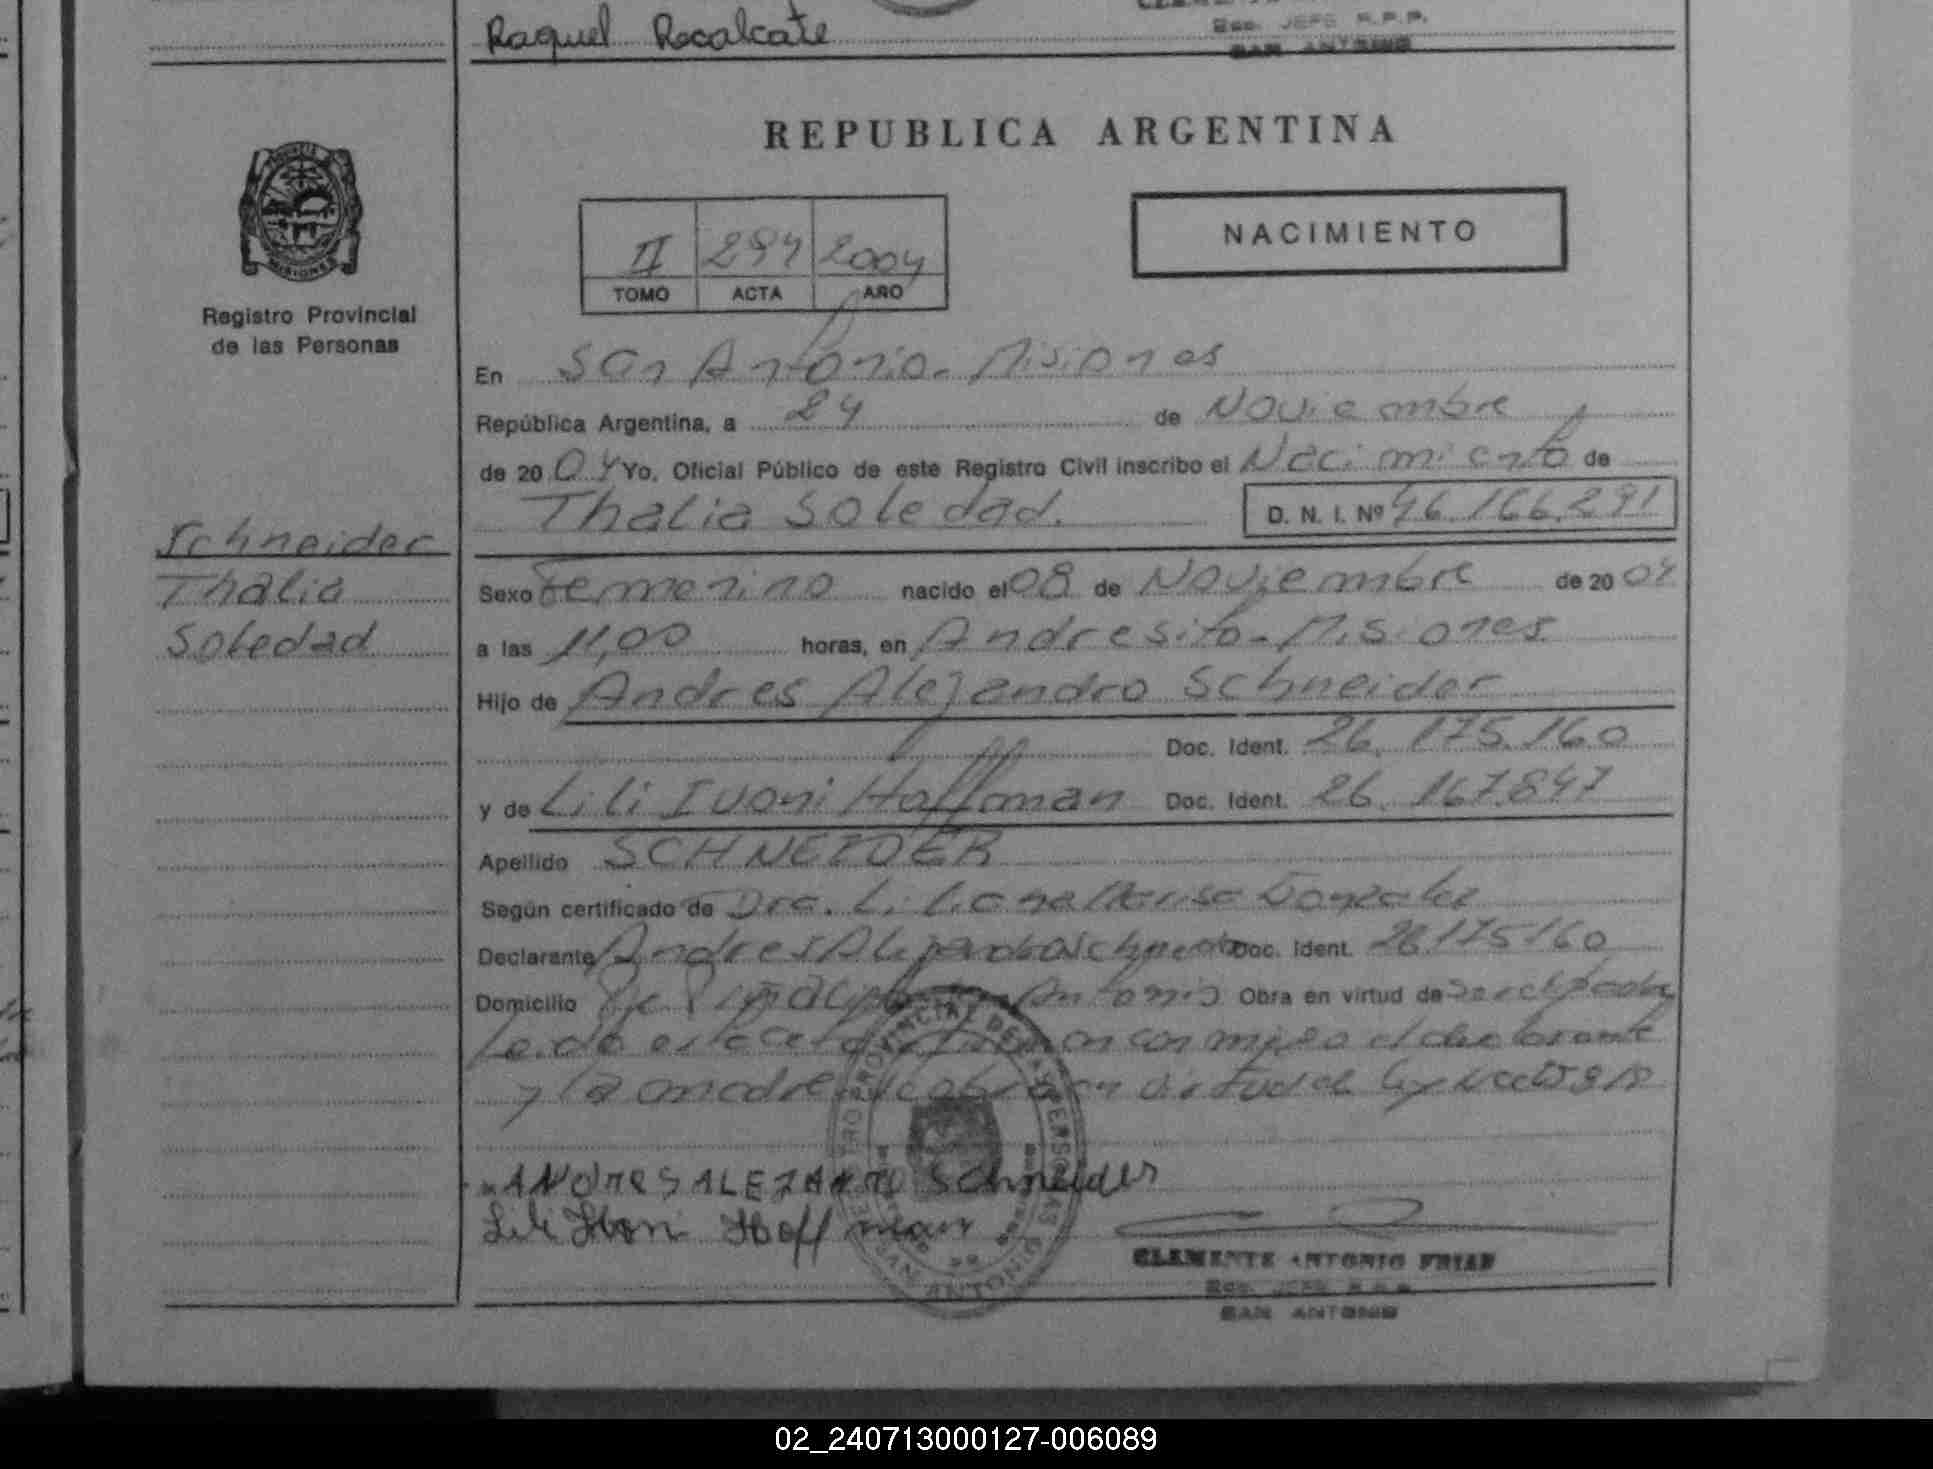 Raquel Recalcate
Bco. JEFE R.P.P.
SAN ANTONIO
REPUBLICA ARGENTINA
PROVINCIA
MISIONES
Registro Provincial
de las Personas
II 294 2004
TOMO ACTA AÑO
NACIMIENTO
En San Antonio - Misiones
República Argentina, a 24 de Noviembre
de 20 04 Yo, Oficial Público de este Registro Civil inscribo el Nacimiento de
Thalia Soledad. D. N. I. Nº 46.166.291
Schneider
Thalia
Soledad
Sexo Femenino nacido el 08 de Noviembre de 20 04
a las 11,00 horas, en Andresito - Misiones
Hijo de Andres Alejandro Schneider
Doc. Ident. 26.175.160
y de Lili Ivoni Hoffman Doc. Ident. 26.167.847
Apellido SCHNEIDER
Según certificado de Dra. Gonzalez
Declarante Andres Alejandro Schneider Doc. Ident. 26.175160
Domicilio Antonio Obra en virtud de
Leida el acta firman conmigo el declarante
y la madre en virtud de ley
ANDRES ALEJANDRO Schneider
Lili Ivoni Hoffman
CLEMENTE ANTONIO FRIAS
SAN ANTONIO
02_240713000127-006089